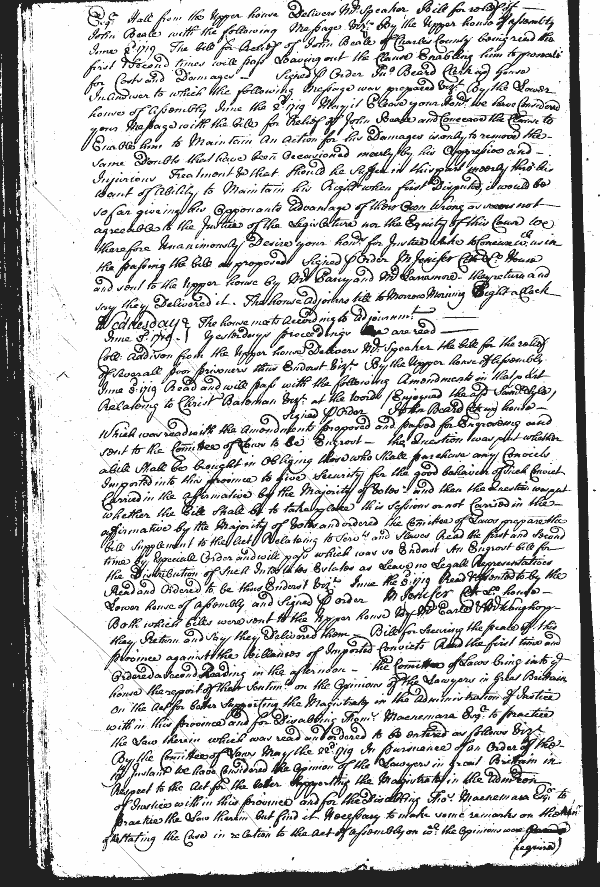 Esqr. Hall from the Upper house Delivers Mr. Speaker Bill for relief of
John Beale with the following Message Vizt. By the Upper house of Assembly
June 2d. 1719 The bill for Relief of John Beale of Charles County being read the
first & Second times will pass Leaving out the Clause Enabling him to
for Costs and Damages Signed p Order Jno. Beard Clerk up house
In Answer to which the following Message was prepared Vizt. By the Lower
house of Assembly June the 2d. 1719 May it Please your honrs. we have Considered
your Message with the bill for Relief of John Beale and Conceive the Clause to
Enable him to Maintain An Action for his Damages is only to remove the
same Doubts that have been Occasioned meerly by his Oppressive and
Injurious Treatment & that should he Suffer in this part meerly thro his
want of Ability to Maintain his Right when first Disputed, it would be
so far giving his Opponents advantage of their Own wrong as is not
agreeable to the Justice of the Legislature nor the Equity of this Cause We
therefore Unanimously Desire your honrs. for Justice sake to Concur with us in
the passing the bill as proposed Signed p Order M Jenifer Cl Lo. House
and sent to the Upper house by Mr. and Mr. they return and
say they Delivered it. The house Adjourns till to Morrow Morning Eight a Clock
Wednesday The house meets According to Adjournmt.
June 3d. 1719. Yesterdays proceedings are read
Coll. Addison from the Upper house Delivers Mr. Speaker the bill for the relief
of Several poor prisoners thus Endorst Vizt. By the Upper house of Assembly
June 3d. 1719 Read and will pass with the following Amendments in that part
Relateing to Christ. Bateman Vizt. at the words (Enjoyned the
Signed p Order John Beard Cl up house
Which was read with the Amendments proposed and passed for Engrossing and
sent to the Comittee of Laws to be Engrost the Question was put whether
a bill Shall be brought in Obliging those who Shall purchase any Convicts
Imported into this province to give Security for the good behavior of such Convict
Carried in the affirmative by the Majority of Votes and then the Question was put
whether the Bill Shall be to take place this Sessions or not Carried in the
affirmative by the Majority of Votes and ordered the Comittee of Laws prepare the
bill Supplement to the Act Relateing to Servts. and Slaves Read the first and Second
time by Especiale Order and will pass which was so Endorst An Engrost bill for
the Distribution of Such Intestates Estates as Leave no Legall Representatives
Read and Ordered to be thus Endorst Vizt. June the 3d. 1719 Read & Assented to by the
Lower house of Assembly and Signed p order M Jenifer Cl Lo house
Both which bills were sent to the Upper house by Mr. and Mr.
they Return and Say they Delivered them Bill for Securing the peace of this
province against the Villanies of Imported Convicts Read the first time and
Ordered a second Reading in the afternoon the Comittee of Laws bring into ye.
house the report of their Sentimts. on the Opinions of the Lawyers in Great Brittain
on the Act for better Supporting the Magistrates in the Administration of Justice
with in this province and for Disabling Thoms. Macnemara Esqr. to practice
the Law therein which was read and ordered to be entered as follows Vizt.
By the Comittee of Laws May the 22d. 1719 In pursuance of an Order of the
Instant we have Considered the Opinion of the Lawyers in great Brittain in
Respect to the Act for the better Supporting the Magistrates in the Admcon
of Justice with in this province and for the Disabling Tho. Macnemara Esqr. to
practice the Law therein but find it Necessary to make some remarks on the
of Stating the Case in relation to the Act of Assembly on wch. the Opinions were
required)